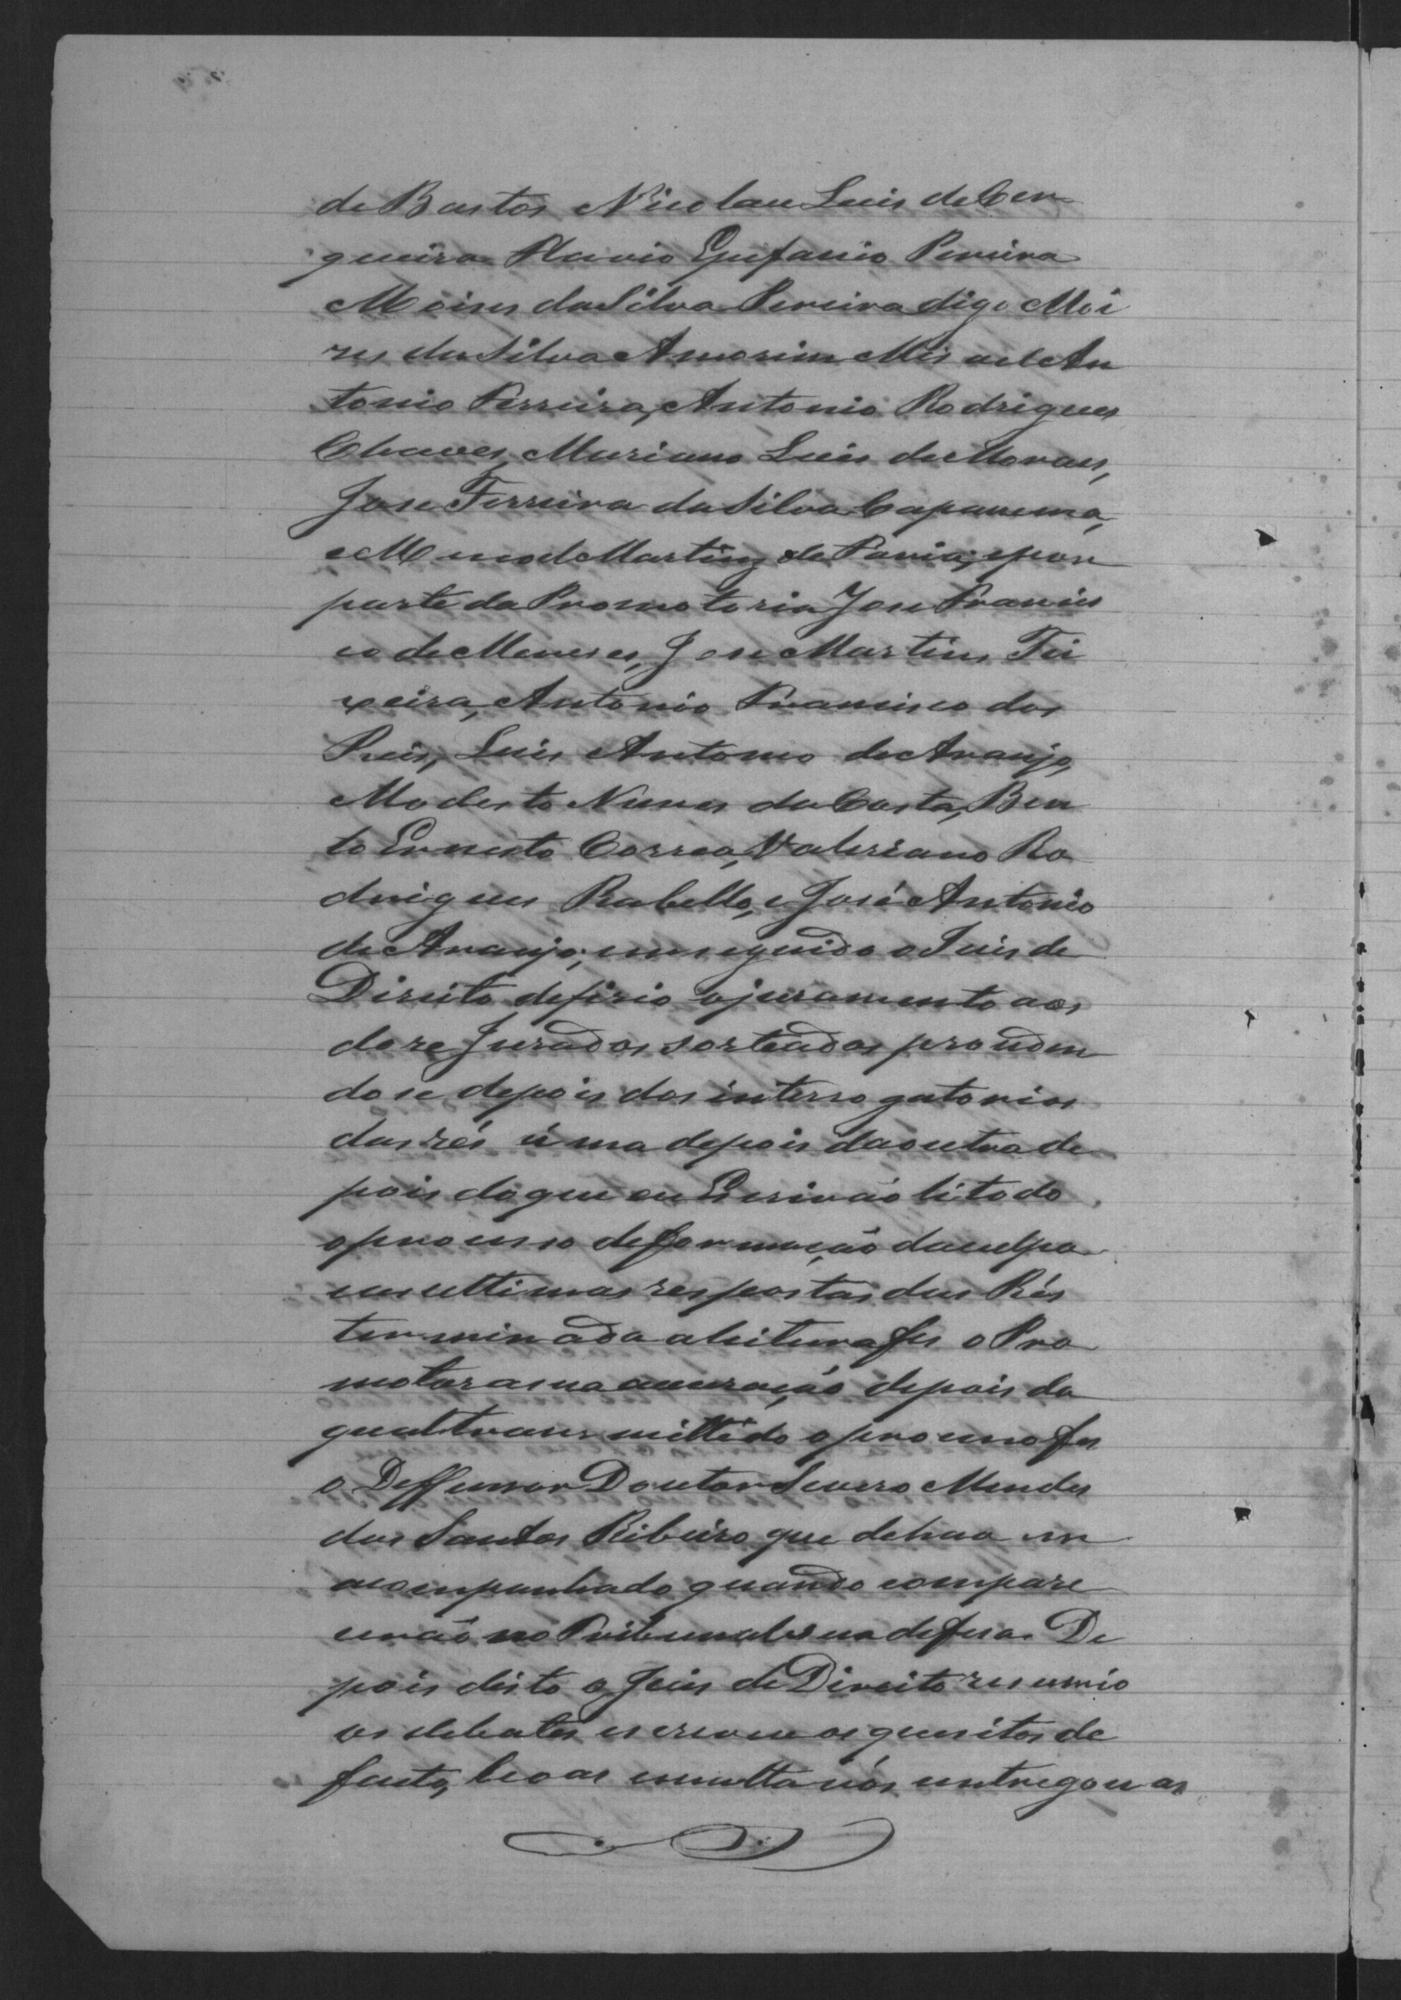 de Bastos Nicolau Luis de Cer
queira Flavio Epifanio Pereira
Moises da Silva Pereira digo Moi
zes da Silva Amorim Misael An
tonio Ferreira, Antonio Rodrigues
Chaves, Mariano Luis de Moraes,
Jose Ferreira da Silva Capanema,
e Manoel Martins de Faria; e por
parte da Promotoria Jose Francis
co de Meneses, Jose Martins Tei
xeira, Antonio Francisco dos
Reis, Luis Antonio de Araujo,
Modesto Nunes da Costa, Ben
to Ernesto Correa, Valeriano Ro
drigues Rabello, e José Antonio
de Araujo; em seguida o Juis de
Direito defirio o juramento aos
doze Jurados sorteados proceden
do se depois dos interrogatorios
das rés uma depois da outra de
pois do que eu Escrivão li todo
o processo de formação da culpa
e as ultimas respostas das Rés
terminada a leitura fes o Pro
motor a sua accusação, depois da
qual transmittido o processo fes
o Deffensor Doutor Mendes
dos Santos Ribeiro que dellas vem
acompanhado quando compare
cerão no Tribunal sua defesa. De
pois disto o Juis de Direito resumio
os debates escreveu os quesitos de
facto, leo as em alta vós, entregou as